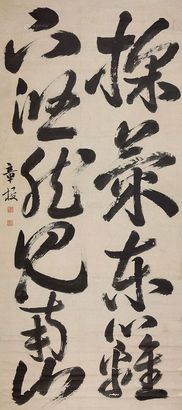 採菊東籬
下悠然見南山
章